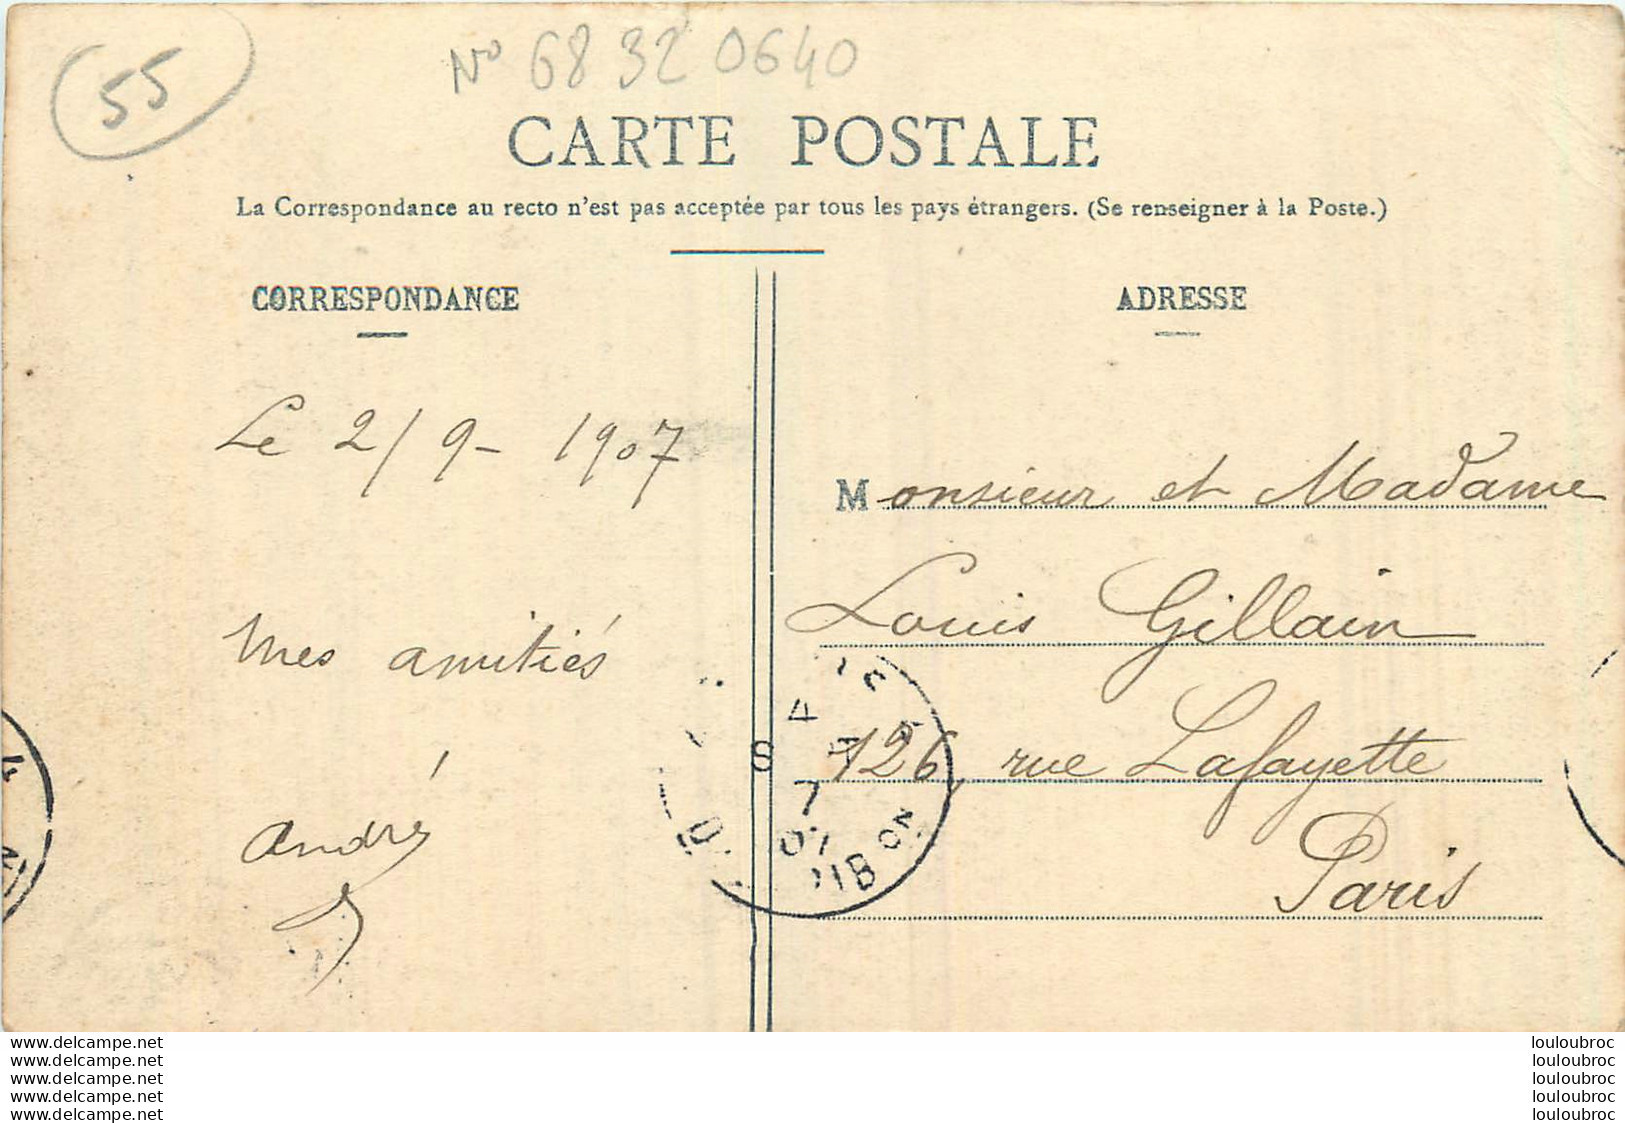 55
No 68 32 0640
CARTE POSTALE
La Correspondance au recto n'est pas acceptée par tous les pays étrangers. (Se renseigner à la Poste.)
CORRESPONDANCE
Le 2/9-1907
Mes amitiés
André
ADRESSE
Monsieur et Madame
Louis Gillain
126, rue Lafayette
Paris
www.delcampe.net
www.delcampe.net
www.delcampe.net
www.delcampe.net
www.delcampe.net
louloubroc
louloubroc
louloubroc
louloubroc
louloubroc